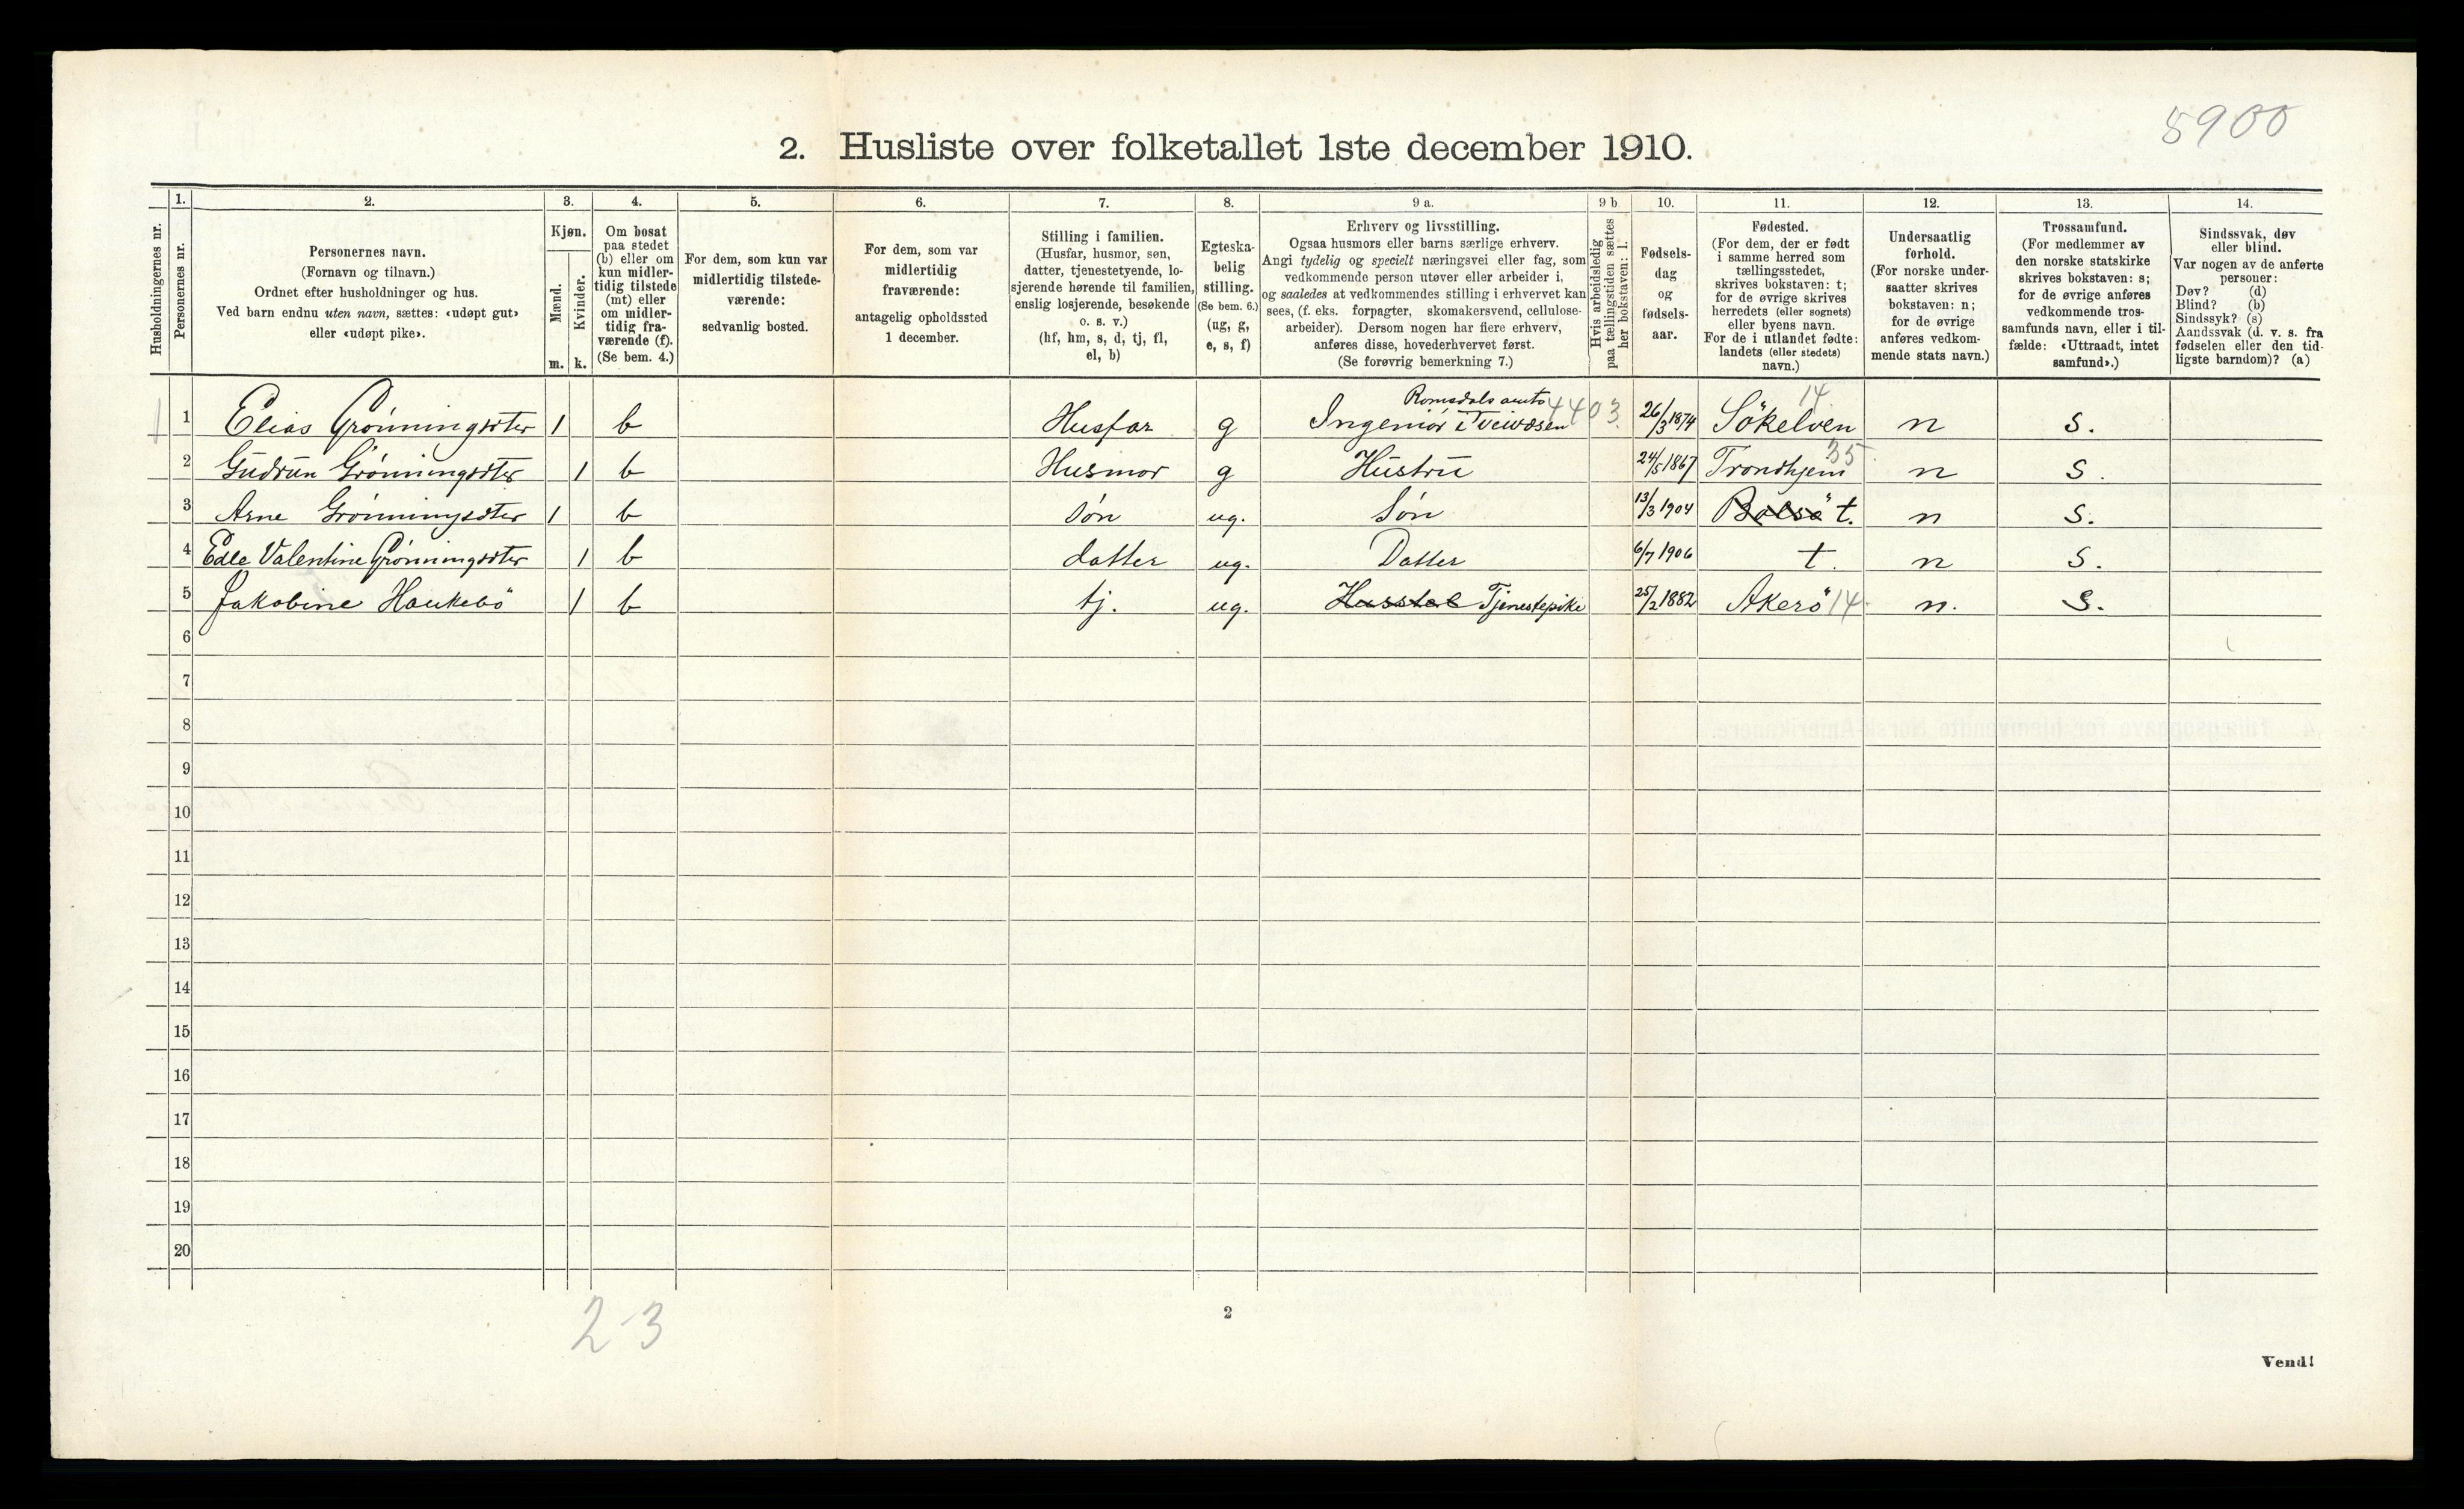 5900
2. Husliste over folketallet 1ste december 1910.
Husholdningernes nr.
1.
Personernes nr.
2.
Personernes navn.
(Fornavn og tilnavn.)
Ordnet efter husholdninger og hus.
Ved barn endnu uten navn, sættes: «udøpt gut»
eller «udøpt pike».
3.
Kjøn.
Mænd.
Kvinder.
m. k.
4.
Om bosat
paa stedet
(b) eller om
kun midler-
tidig tilstede
(mt) eller
om midler-
tidig fra-
værende (f).
(Se bem. 4.)
5.
For dem, som kun var
midlertidig tilstede-
værende:
sedvanlig bosted.
6.
For dem, som var
midlertidig
fraværende:
antagelig opholdssted
1 december.
7.
Stilling i familien.
(Husfar, husmor, søn,
datter, tjenestetyende, lo-
sjerende hørende til familien,
enslig losjerende, besøkende
o. s. v.)
(hf, hm, s, d, tj, fl,
el, b)
8.
Egteska-
belig
stilling.
(Se bem. 6.)
(ug, g,
e, s, f)
9 a.
Erhverv og livsstilling.
Ogsaa husmors eller barns særlige erhverv.
Angi tydelig og specielt næringsvei eller fag, som
vedkommende person utøver eller arbeider i,
og saaledes at vedkommendes stilling i erhvervet kan
sees, (f. eks. forpagter, skomakersvend, cellulose-
arbeider). Dersom nogen har flere erhverv,
anføres disse, hovederhvervet først.
(Se forøvrig bemerkning 7.)
9 b
Hvis arbeidsledig
paa tællingstiden sættes
her bokstaven: l.
10.
Fødsels-
dag
og
fødsels-
aar.
11.
Fødested.
(For dem, der er født
i samme herred som
tællingsstedet,
skrives bokstaven: t;
for de øvrige skrives
herredets (eller sognets)
eller byens navn.
For de i utlandet fødte:
landets (eller stedets)
navn.)
12.
Undersaatlig
forhold.
(For norske under-
saatter skrives
bokstaven: n;
for de øvrige
anføres vedkom-
mende stats navn.)
13.
Trossamfund.
(For medlemmer av
den norske statskirke
skrives bokstaven: s;
for de øvrige anføres
vedkommende tros-
samfunds navn, eller i til-
fælde: «Uttraadt, intet
samfund».)
14.
Sindssvak, døv
eller blind.
Var nogen av de anførte
personer:
Døv? (d)
Blind? (b)
Sindssyk? (s)
Aandssvak (d. v. s. fra
fødselen eller den tid-
ligste barndom)? (a)
Romsdals amts 4403 14
1 1 Elias Grönningsæter 1 b Husfar g Ingeniör i veivæsen 26/3 1874 Sökelven n s.
35
2 Gudrun Grönningsæter 1 b Husmor g Hustru 24/5 1867 Trondhjem n s.
3 Arne Grönningsæter 1 b sön ug. Sön 13/3 1904 Bolsö t. n s.
4 Edle Valentine Grönningsæter 1 b datter ug. Datter 6/7 1906 t. n s.
5 Jakobine Haukebö 1 b tj. ug. Husstel Tjenestepike 25/2 1882 Akerö 14. n. s.
6
7
8
9
10
11
12
13
14
15
16
17
18
19
20
2-3
2
Vend!